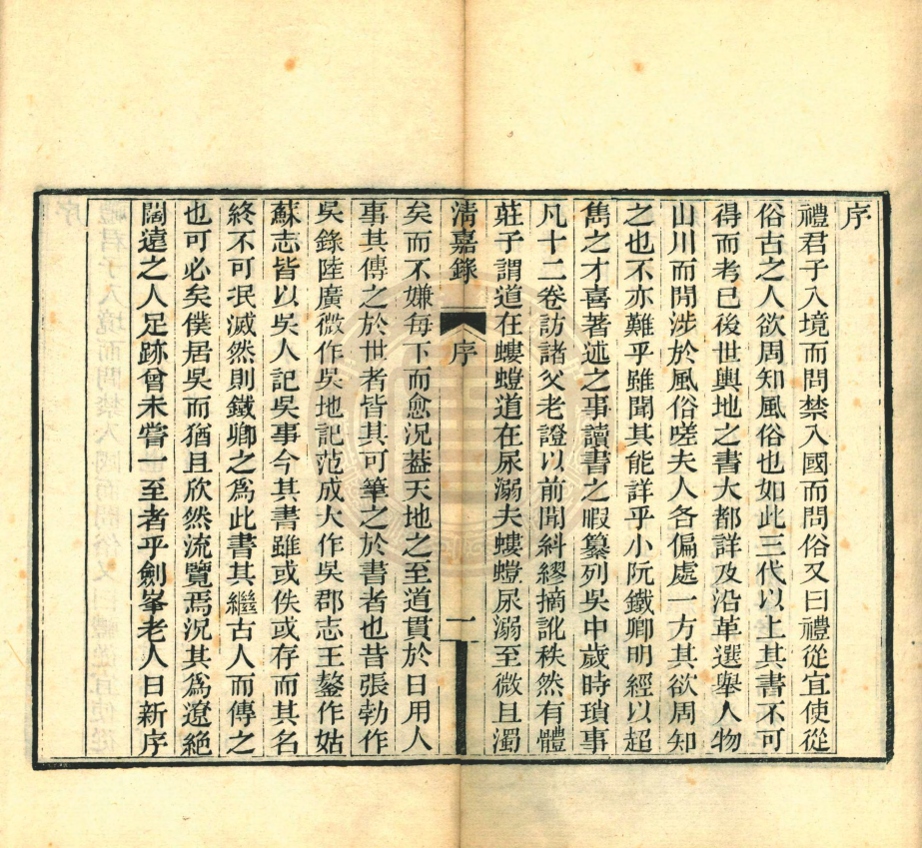 序
禮君子入境而問禁入國而問俗又曰禮從宜使從
俗古之人欲周知風俗也如此三代以上其書不可
得而考已後世輿地之書大都詳及沿革選舉人物
山川而閒涉於風俗嗟夫人各偏處一方其欲周知
之也不亦難乎雖聞其能詳乎小阮鐵卿明經以超
雋之才喜著述之事讀書之暇纂列吳中歲時瑣事
凡十二卷訪諸父老證以前聞糾繆摘訛秩然有體
莊子謂道在螻螘道在尿溺夫螻螘尿溺至微且濁
清嘉錄 序 一
矣而不嫌每下而愈況葢天地之至道貫於日用人
事其傳之於世者皆其可筆之於書者也昔張勃作
吳錄陸廣微作吳地記范成大作吳郡志王鏊作姑
蘇志皆以吳人記吳事今其書雖或佚或存而其名
終不可泯滅然則鐵卿之爲此書其繼古人而傳之
也可必矣僕居吳而猶且欣然流覽焉況其爲遼絕
闊遠之人足跡曾未嘗一至者乎劍峯老人日新序